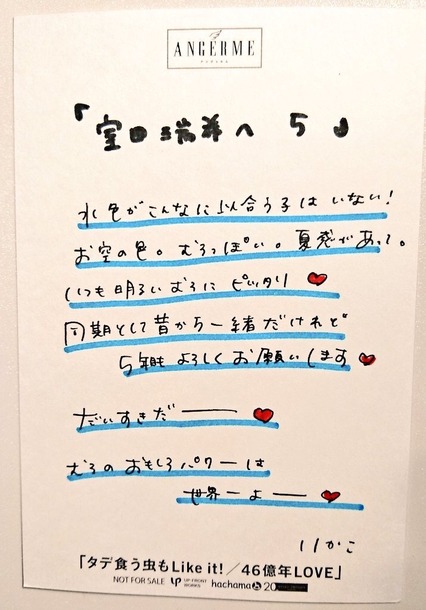 ANGERME
アンジュルム
「室田瑞希へ 5」
水色がこんなに似合う子はいない!
お空の色。むろっぽい。夏感があって。
いつも明るいむろにピッタリ
同期として昔から一緒だけれど
5年目もよろしくお願いします
だいすきだーーー
むろのおもしろパワーは
世界一よーー
りかこ
「タデ食う虫もLike it!/46億年LOVE」
NOT FOR SALE UP UP-FRONT WORKS hachama 20